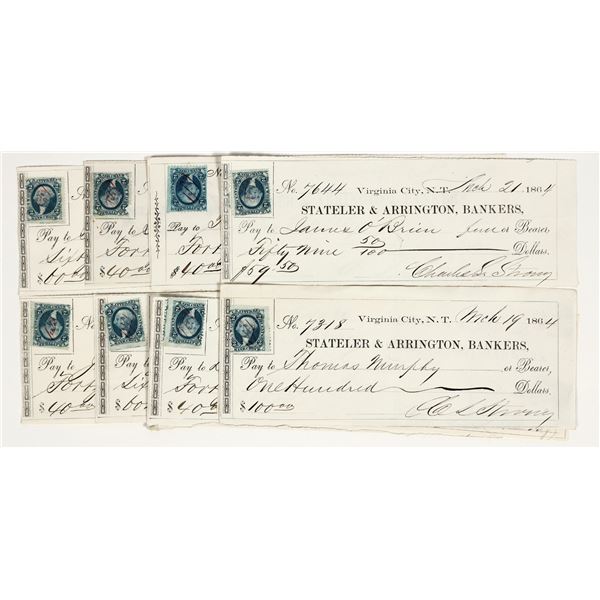 No. 7644 Virginia City, N.T. Mch 21 1864
STATELER & ARRINGTON, BANKERS,
Pay to James O'Brien or Bearer,
Fifty Nine 50/100 Dollars.
$59.50 Charles L Strong
No. 7318 Virginia City, N.T. Mch 19 1864
STATELER & ARRINGTON, BANKERS,
Pay to Thomas Murphy or Bearer,
One Hundred Dollars,
$100.00 C L Strong
Pay to
Sixt
$60.00
Pay to
Forty
$40.00
Pay to
Forty
$40.00
Pay to
Forty
$40.00
Pay to
Sixt
$60.00
Pay to
Forty
$40.00